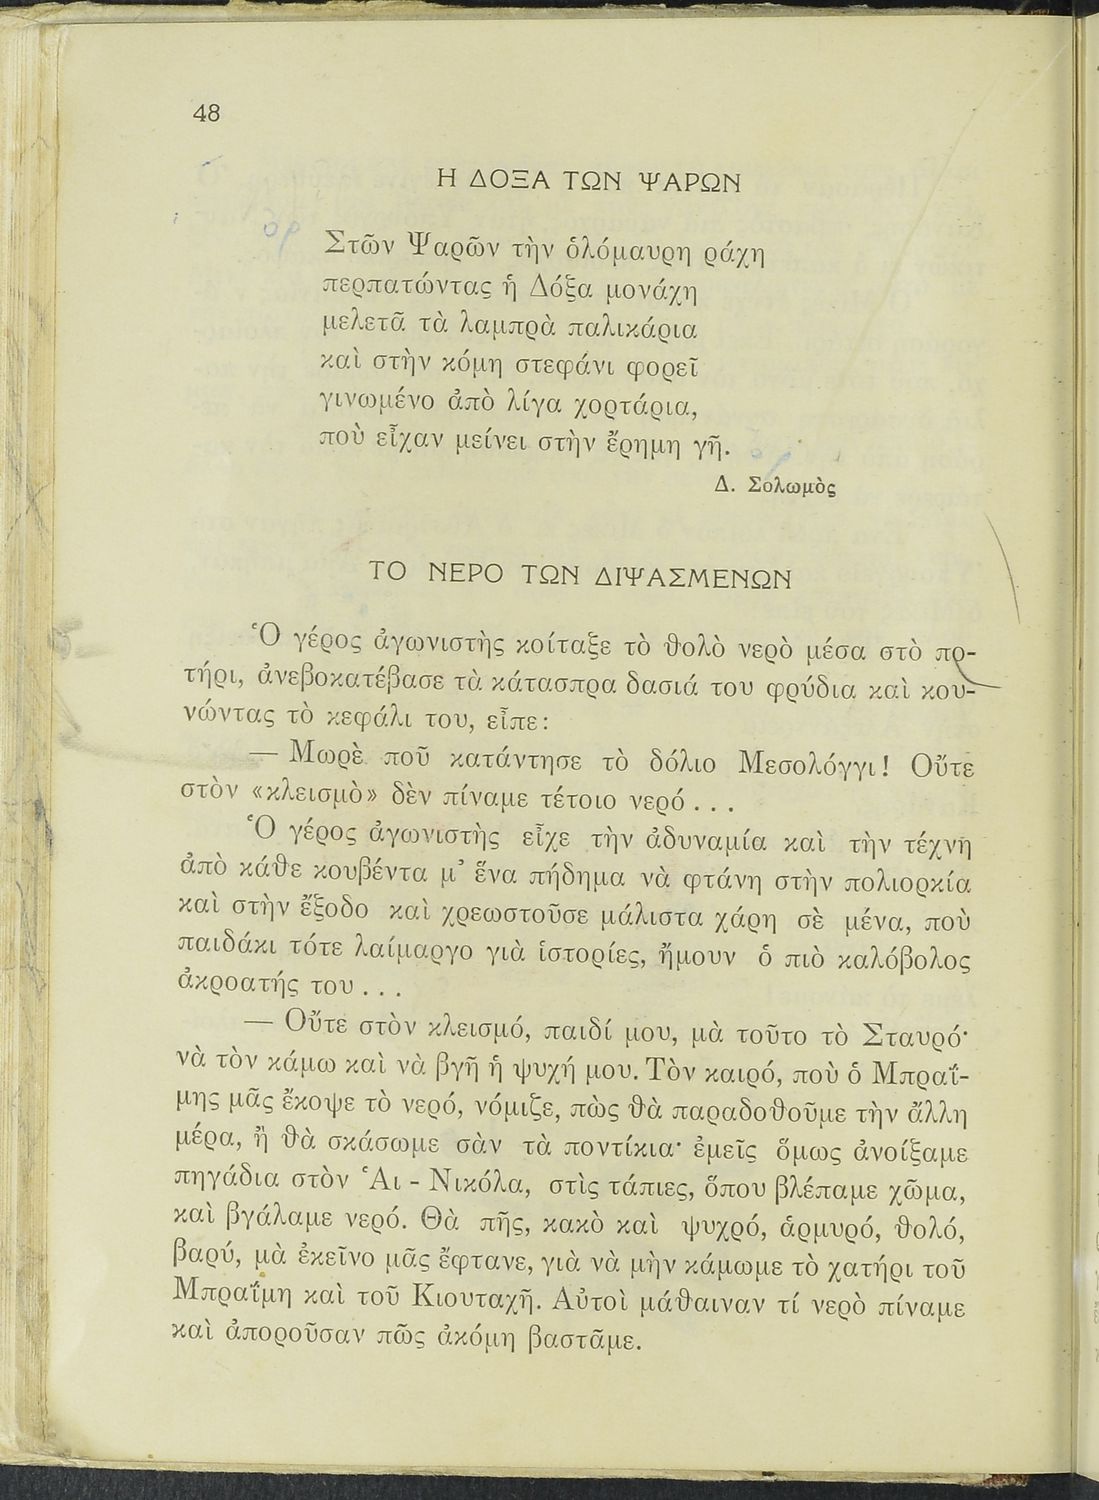 48
Η ΔΟΞΑ ΤΩΝ ΨΑΡΩΝ
Στῶν Ψαρῶν τὴν ὁλόμαυρη ράχη
περπατώντας ἡ Δόξα μονάχη
μελετᾶ τὰ λαμπρὰ παλικάρια
καὶ στὴν κόμη στεφάνι φορεῖ
γινωμένο ἀπὸ λίγα χορτάρια,
ποὺ εἶχαν μείνει στὴν ἔρημη γῆ.
Δ. Σολωμὸς
ΤΟ ΝΕΡΟ ΤΩΝ ΔΙΨΑΣΜΕΝΩΝ
Ὁ γέρος ἀγωνιστὴς κοίταξε τὸ θολὸ νερὸ μέσα στὸ πο-
τήρι, ἀνεβοκατέβασε τὰ κάτασπρα δασιά του φρύδια καὶ κου-
νώντας τὸ κεφάλι του, εἶπε:
— Μωρὲ ποῦ κατάντησε τὸ δόλιο Μεσολόγγι! Οὔτε
στὸν «κλεισμὸ» δὲν πίναμε τέτοιο νερό...
Ὁ γέρος ἀγωνιστὴς εἶχε τὴν ἀδυναμία καὶ τὴν τέχνη
ἀπὸ κάθε κουβέντα μ᾿ ἕνα πήδημα νὰ φτάνη στὴν πολιορκία
καὶ στὴν ἔξοδο καὶ χρεωστοῦσε μάλιστα χάρη σὲ μένα, ποὺ
παιδάκι τότε λαίμαργο γιὰ ἱστορίες, ἤμουν ὁ πιὸ καλόβολος
ἀκροατής του...
— Οὔτε στὸν κλεισμό, παιδί μου, μὰ τοῦτο τὸ Σταυρό·
νὰ τὸν κάμω καὶ νὰ βγῆ ἡ ψυχή μου. Τὸν καιρό, ποὺ ὁ Μπραΐ-
μης μᾶς ἔκοψε τὸ νερό, νόμιζε, πὼς θὰ παραδοθοῦμε τὴν ἄλλη
μέρα, ἢ θὰ σκάσωμε σὰν τὰ ποντίκια· ἐμεῖς ὅμως ἀνοίξαμε
πηγάδια στὸν Ἁι - Νικόλα, στὶς τάπιες, ὅπου βλέπαμε χῶμα,
καὶ βγάλαμε νερό. Θὰ πῆς, κακὸ καὶ ψυχρό, ἁρμυρό, θολό,
βαρύ, μὰ ἐκεῖνο μᾶς ἔφτανε, γιὰ νὰ μὴν κάμωμε τὸ χατήρι τοῦ
Μπραΐμη καὶ τοῦ Κιουταχῆ. Αὐτοὶ μάθαιναν τί νερὸ πίναμε
καὶ ἀποροῦσαν πῶς ἀκόμη βαστᾶμε.